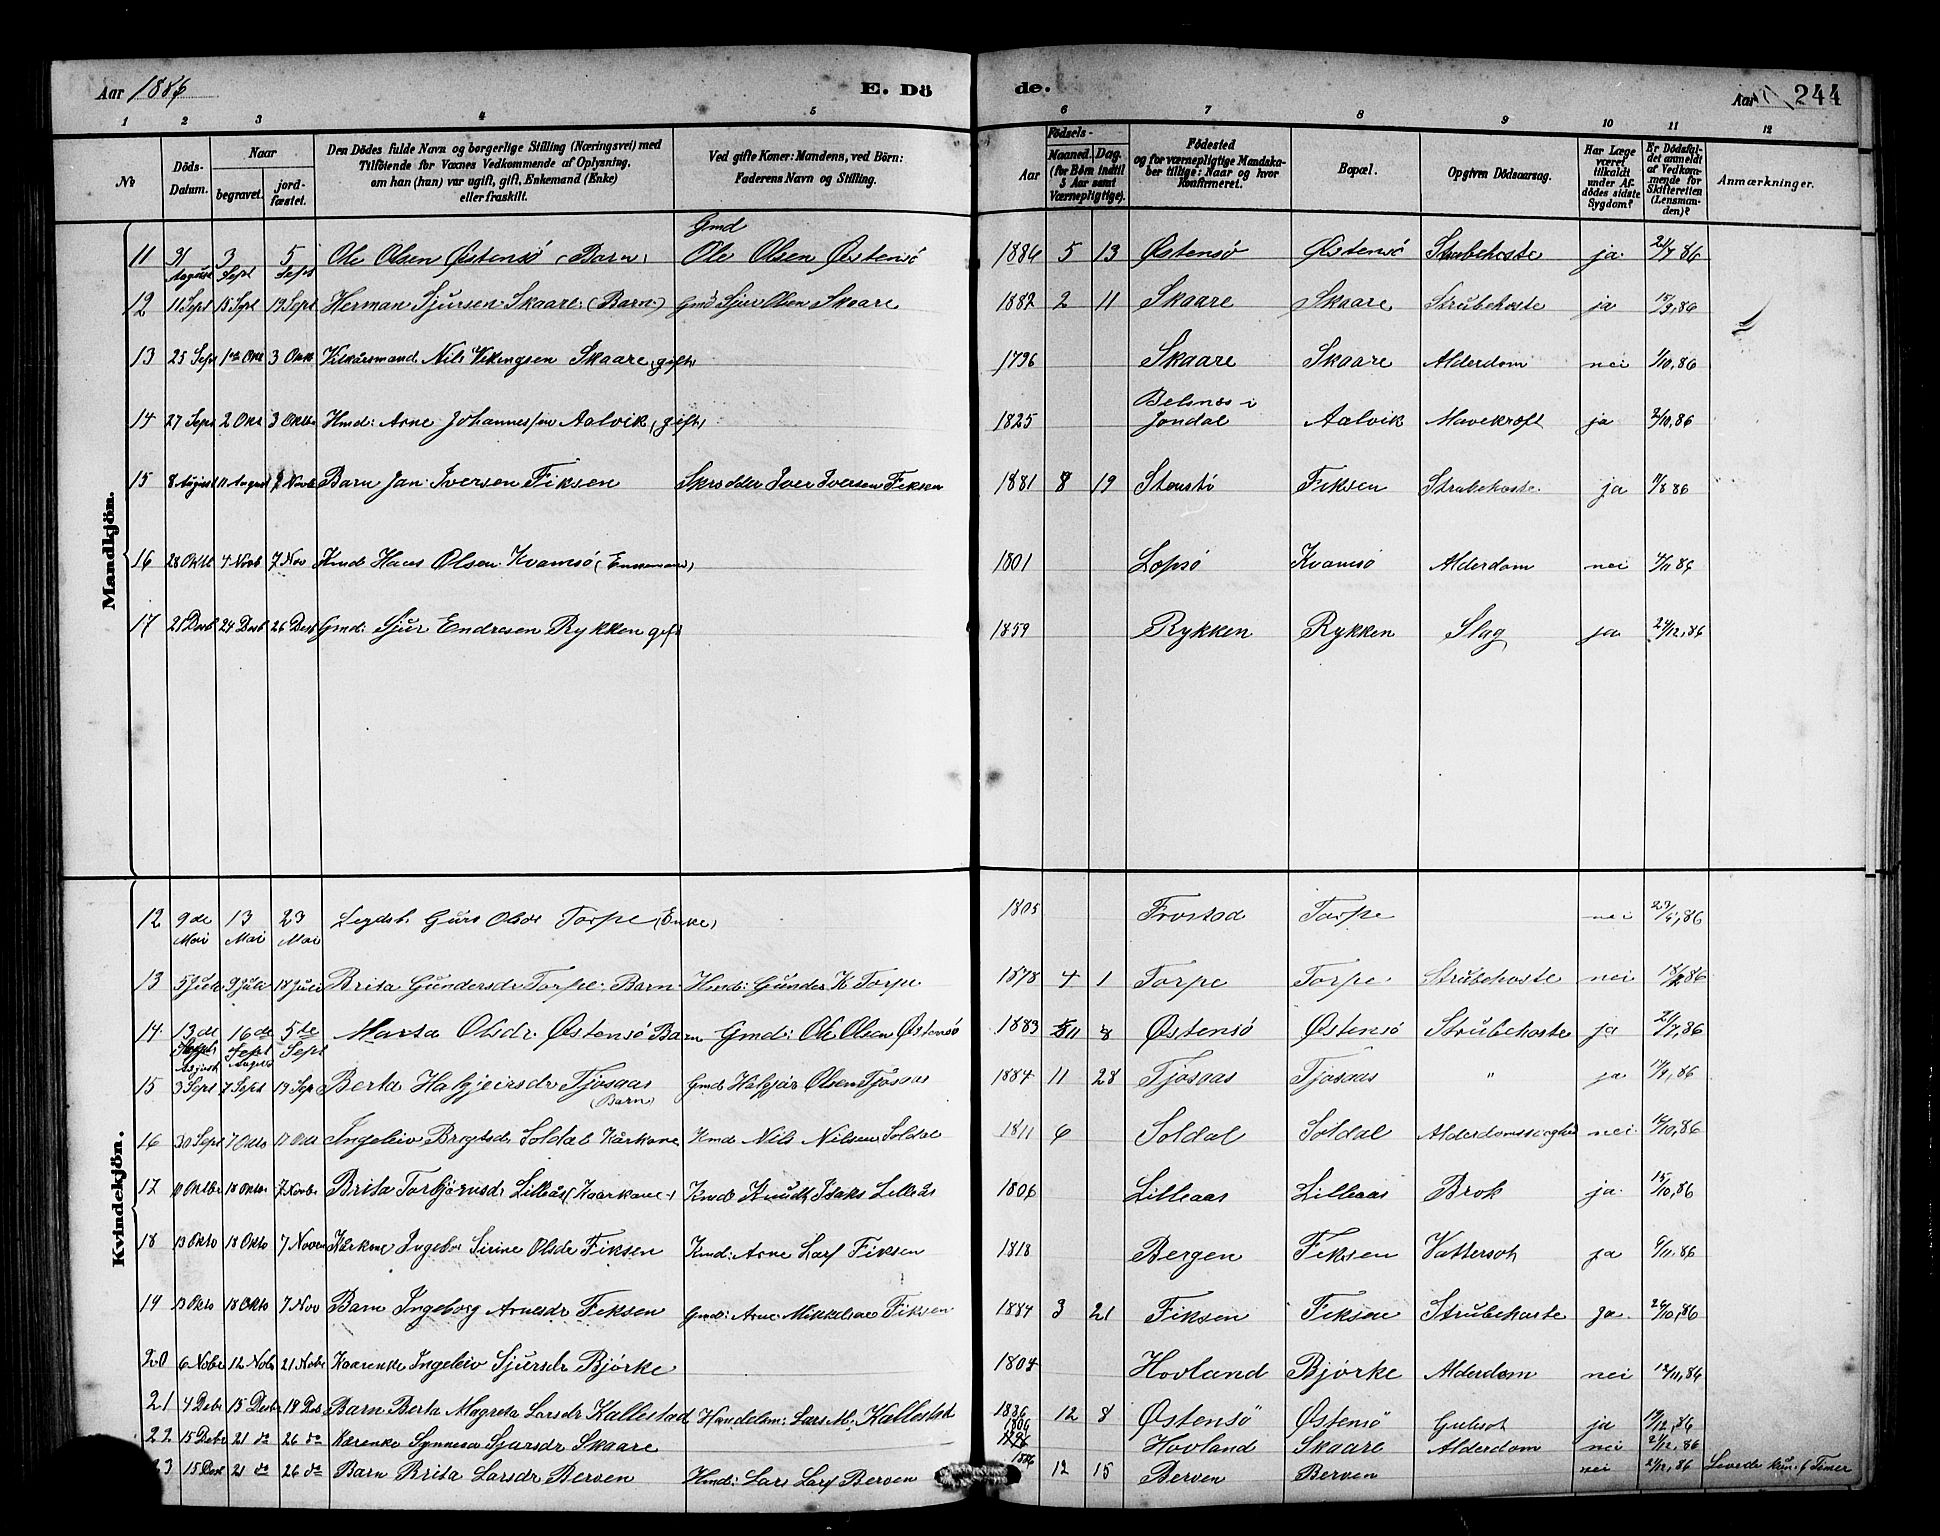 Aar 1886
E. Dö
de.
Aar
244
1 2 3 4 5 6 7 8 9 10 11 12
No
Döds-Datum.
Naar
begravet.
jord-fæstet.
Den Dödes fulde Navn og borgerlige Stilling (Næringsvei) med
Tilföiende for Voxnes Vedkommende af Oplysning,
om han (hun) var ugift, gift, Enkemand (Enke)
eller fraskilt.
Ved gifte Koner: Mandens, ved Börn:
Faderens Navn og Stilling.
Födsels-
Aar
Maaned.
Dag.
(for Börn indtil
5 Aar samt
Værnepligtige).
Födested
og for værnepligtige Mandska-
ber tillige: Naar og hvor
Konfirmeret.
Bopæl.
Opgiven Dödsaarsag.
Har Læge
været
tilkaldt
under Af-
dödes sidste
Sygdom?
Er Dödsfal-
det anmeldt
af Vedkom-
mende for
Skifteretten
(Lensman-
den)?
Anmærkninger.
Mandkjön.
Gmd
11 31 August 3 Sept 5 Sept Ole Olsen Østensö (Barn) Ole Olsen Østensö 1886 5 13 Østensö Østensö Strubehoste ja 21/7 86
12 11 Sept 15 Sept 19 Sept Herman Sjursen Skaare (Barn) Gmd Sjur Olsen Skaare 1882 2 11 Skaare Skaare Strubehoste ja 15/9, 86
13 25 Sept 1ste Okt 3 Okt Vilkårsmand Nils Vikingsen Skaare (gift) 1796 Skaare Skaare Alderdom nei 1/10, 86
Belsnæs i
14 27 Sept 2 Okt 3 Oktbr Hmd: Arne Johannessen Aalvik (gift) 1825 Jondal Aalvik Mavekræft ja 2/10, 86
15 8 August 11 August 7 Novb Barn Jan Iversen Fiksen Skrædder Iver Iversen Fiksen 1881 8 19 Steinstö Fiksen Strubehoste ja 11/8 86
16 28 Oktb 4 Novb 7 Nov Kmd Hans Olsen Kvamsö (Enkemand) 1801 Lopsö Kvamsö Alderdom nei 4/11 86
17 21 Desb 24 Desb 26 Desb Gmd: Sjur Endresen Rykken gift 1859 Rykken Rykken Slag ja 24/12, 86
Kvindekjön.
12 9de Mai 13 Mai 23 Mai Legdsl. Guro Olsdr Torpe (Enke) 1805 Frostad Torpe nei 23/5, 86
13 5 Juli 9 Juli 18 Juli Brita Gundersdr Torpe. Barn Hmd: Gunder K Torpe 1878 4 1 Torpe Torpe Strubehoste nei 86
14 13de August 16de August 5te Sept Marta Olsdr. Østensö Barn Gmd: Ole Olsen Østensö 1883 11 8 Østensö Østensö Strubehoste ja 21/7, 86
15 3 Sept 7 Sept 19 Sep Berta Halgjeirsdr Tjosaas Gmd Halgjeir Olsen Tjosaas 1884 11 28 Tjosaas Tjosaas " ja 17/9, 86
(Barn)
16 30 Sept 7 Okto 17 Okt Ingeleiv Brytsdr Soldal Kårkone Kmd Nils Nilsen Soldal 1811 6 Soldal Soldal nei 86
17 11 Oktbr 18 Oktbr 7 Novbr Brita Torbjörnsdr Lilleås (Kaarkone) Kmd Knudt Isaks Lilleås 1806 Lilleaas Lilleaas Brok ja 15/10, 86
18 13 Okto 18 Okto 7 Noven Kårkone Ingebor Sirine Olsdr Fiksen Kmd: Arne Lars Fiksen 1818 Bergen Fiksen Vattersot ja 86
19 13 Okto 18 Okto 7 Nov Barn Ingeborg Arnesdr Fiksen Gmd: Arne Mikkelsen Fiksen 1884 3 21 Fiksen Fiksen Strubehoste ja 86
20 6 Nobr 12 Nobr 21 Nobr Kaarenke Ingeleiv Sjursdr Bjørke 1804 Hovland Bjørke Alderdom nei 12/11, 86
21 4 Debr 15 Desbr 18 Des Barn Berta Magreta Larsdr Kallestad Handelsm: Lars M. Kallestad 1886 12 8 Østensö Østensö Gulsot ja 86
22 15 Debr 21 do 26 do Kårenke Synneva Sjursdr Skaare Hovland Skaare Alderdom nei 21/12, 86
23 15 Desb 21 do 26 do Barn Brita Larsdr Berven Hmd: Lars Lars Berven 1886 12 15 Berven Berven nei 21/12, 86 Levede kun Timer